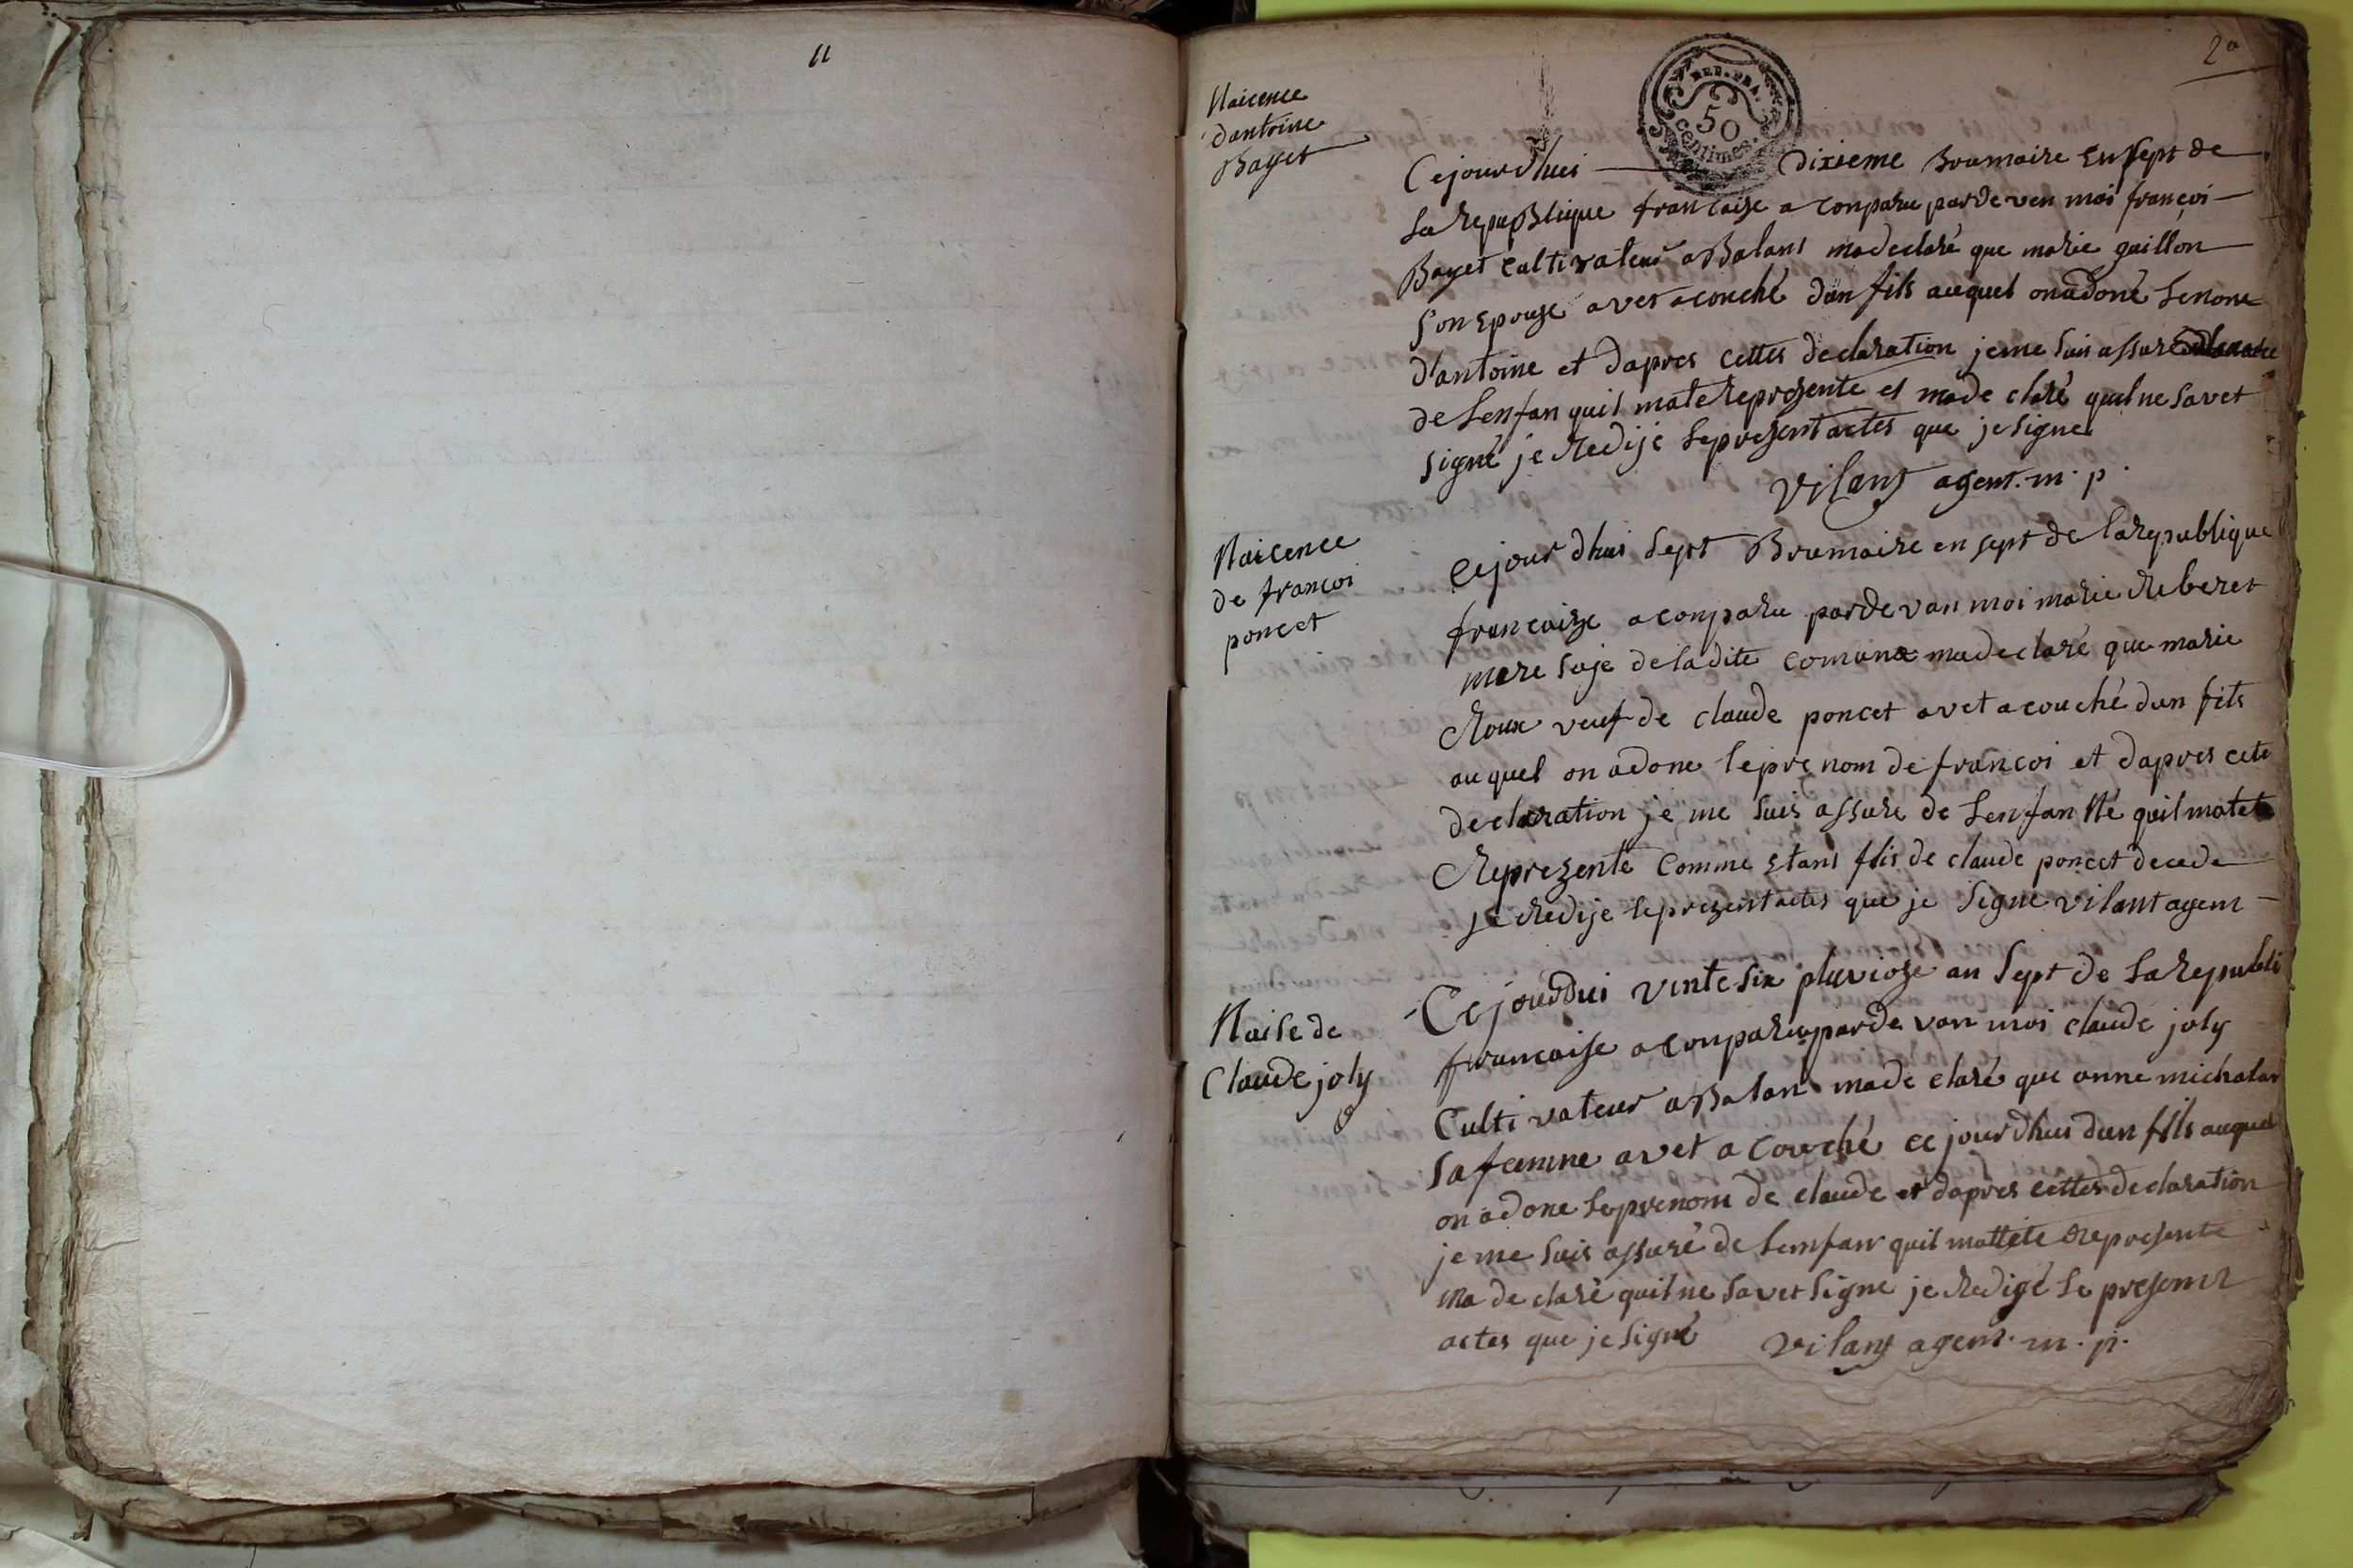 11
2e
REP. FRA.
50
centimes.
Naicence
dantoine
Bayet
Cejourdhuei dixieme Brumaire en sept de
La Republique francaise a conparu pardeven moi françoi
Bayet cultivateur a Balans madeclaré que marie guillon
son Epouse avet acouché dun fils auquel on a doné Le nom
d'antoine et dapres cettes declaration jeme suis assuré
de Lenfan quil mate represente et madeclaré quil ne savet
signé je Redije Lepresent actes que je signe
Vilant agent. m. p.
Naicence
de francoi
poncet
cejour dhui sept Brumaire en sept de la republique
francaize a conparu pardevan moi marie Reberet
mere saje de ladite comune madeclaré que marie
Roux veuf de claude poncet avet acouché dun fils
auquel on adone leprenom de francoi et dapres cete
declaration je me suis assure de Lenfan Né quil matete
Reprezenté comme Etans fils de claude poncet decede
Je Redije leprezent actes que je signe vilant agent
Naise de
Claude joly
Cejourdui vinte six pluvioze an sept de La Republi
francaise a conparu parde van moi claude joly
Cultivateur a Balan made claré que anne michalar
sa femme avet a couché ce jourdhui dun fils auquel
on adone Leprenom de claude et dapres cettes declaration
je me suis assuré de Lenfan quil mattete represente
ma declaré quil ne savet signe je Redigé Le present
actes que je signé Vilant agent. m. p.